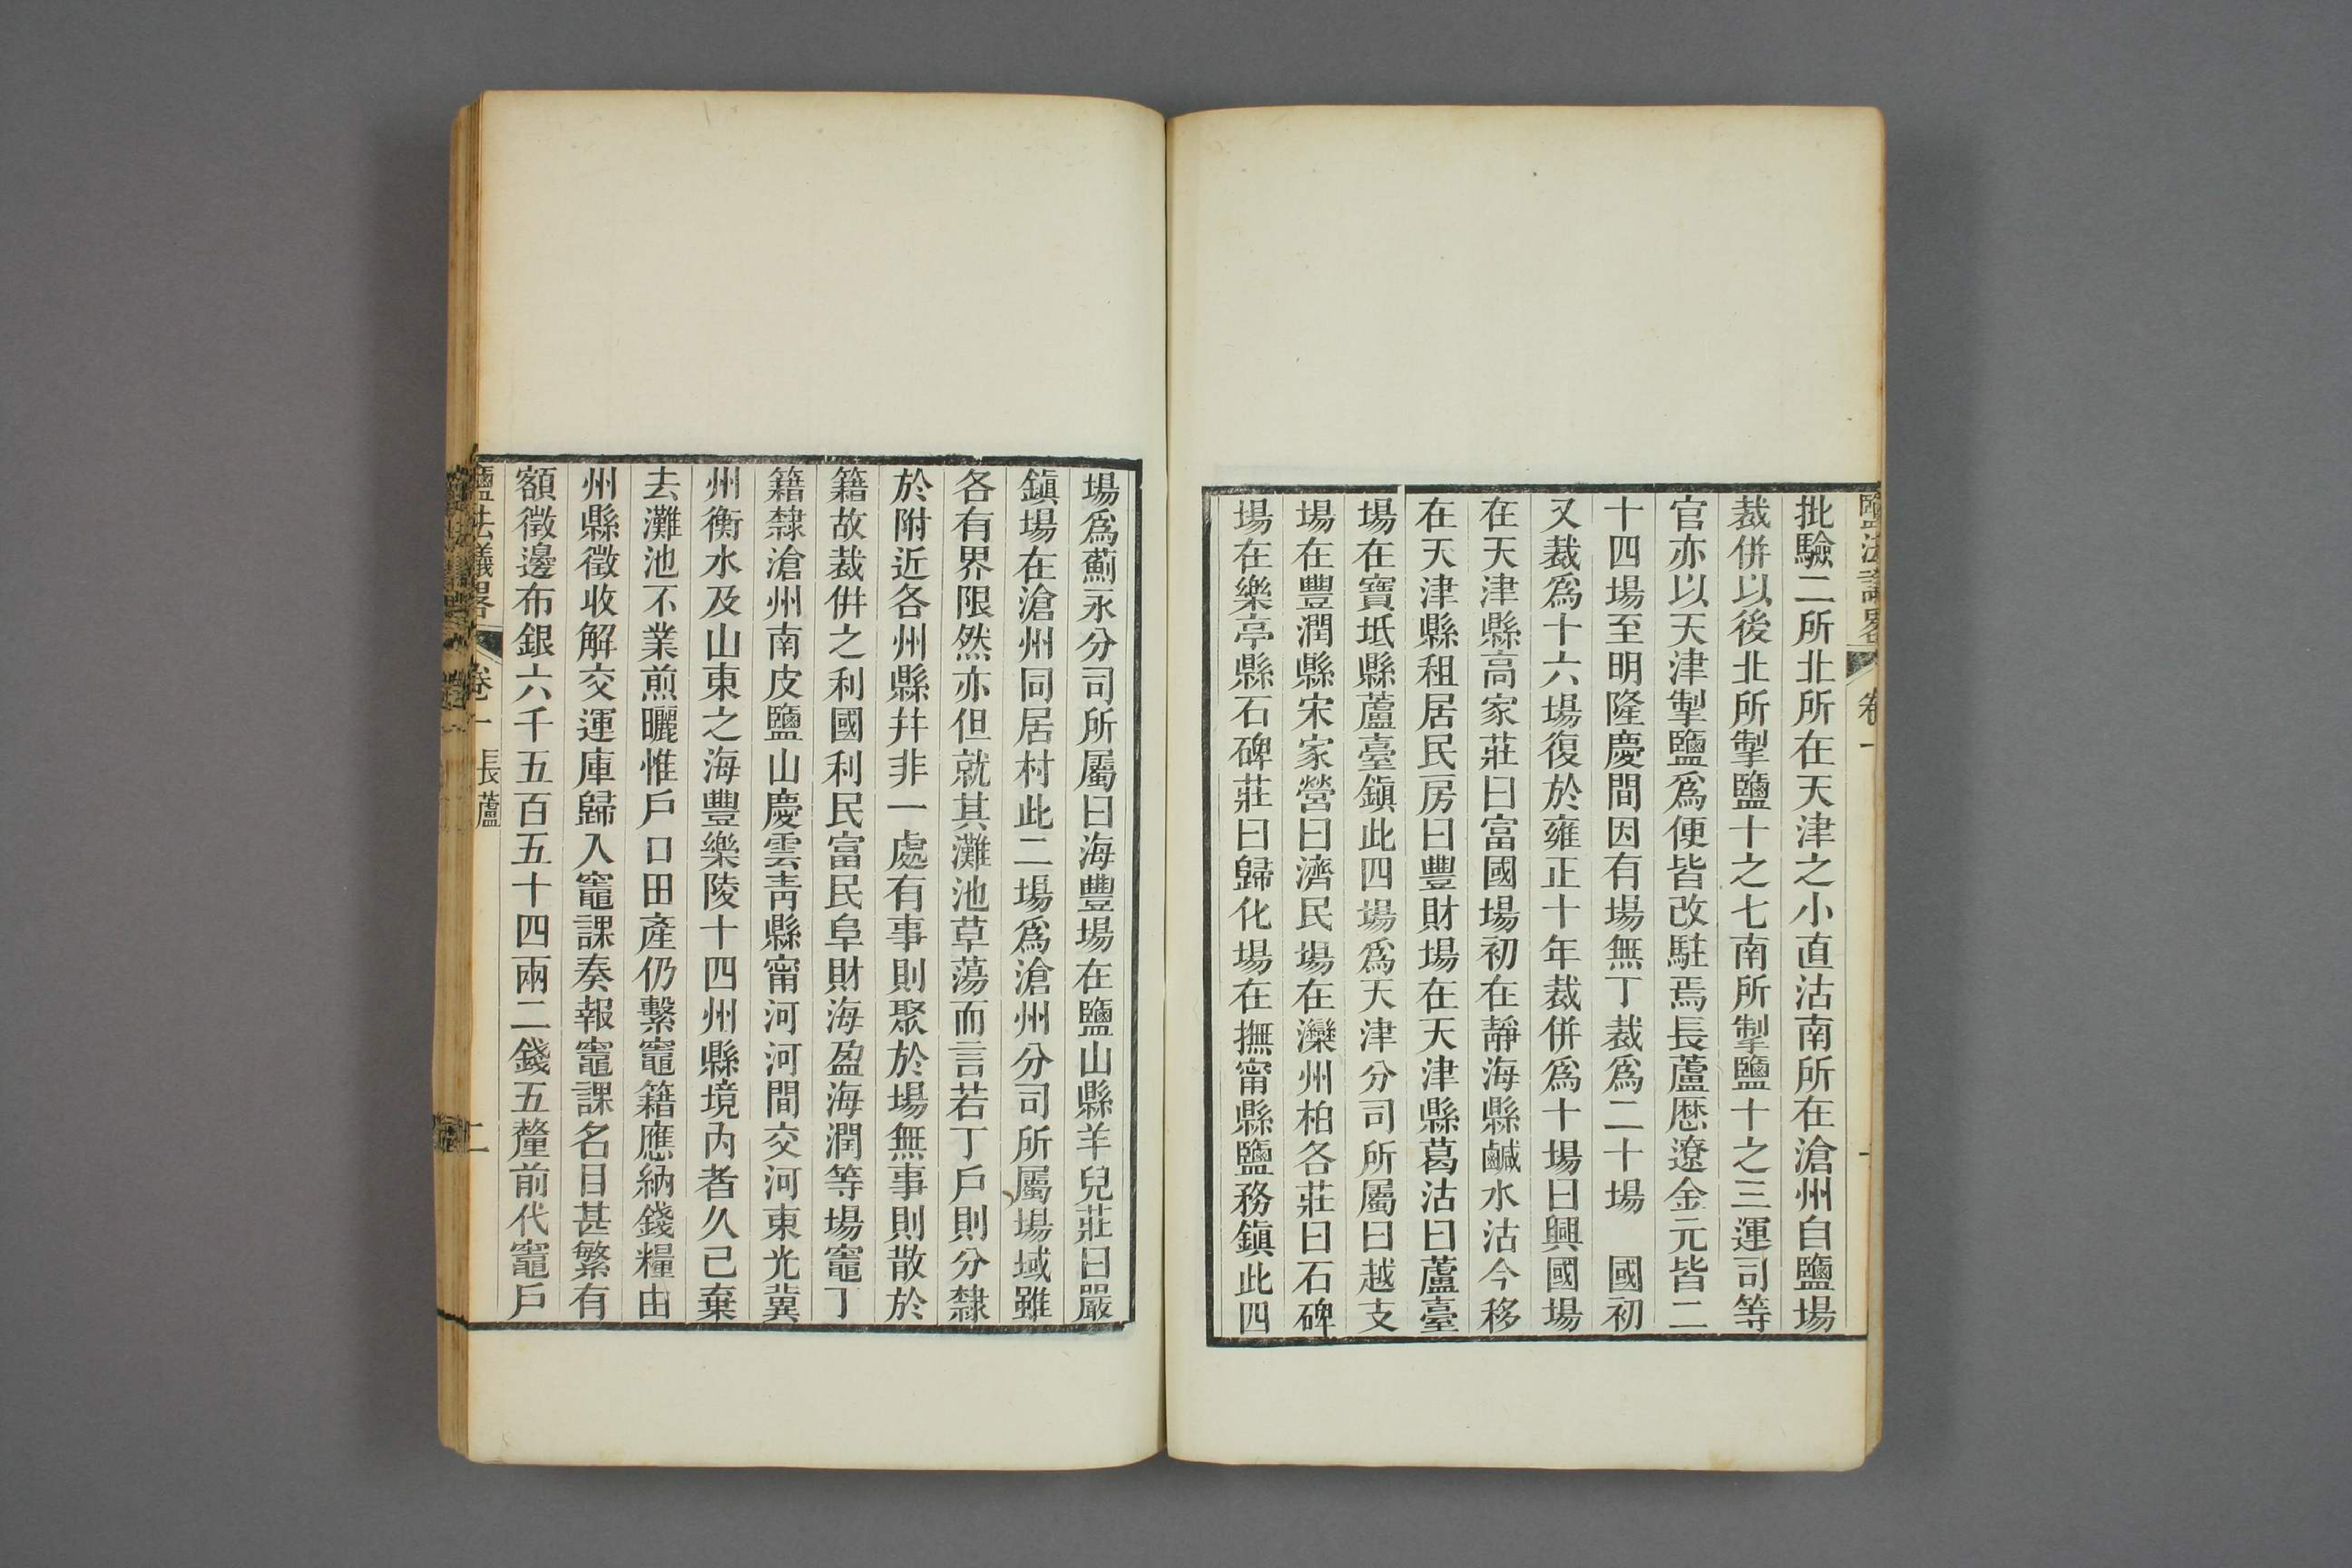 批驗二所北所在天津之小直沽南所在滄州自鹽場
裁併以後北所掣鹽十之七南所掣鹽十之三運司等
官亦以天津掣鹽爲便皆改駐焉長蘆厯遼金元皆二
十四場至明隆慶間因有場無丁裁爲二十場　國初
又裁爲十六場復於雍正十年裁併爲十場曰興國場
在天津縣高家莊曰富國場初在靜海縣鹹水沽今移
在天津縣租居民房曰豐財場在天津縣葛沽曰蘆臺
場在寶坻縣蘆臺鎭此四場爲天津分司所屬曰越支
場在豐潤縣宋家營曰濟民場在灤州柏各莊曰石碑
場在樂亭縣石碑莊曰歸化場在撫甯縣鹽務鎭此四
場爲薊永分司所屬曰海豐場在鹽山縣羊兒莊曰嚴
鎭場在滄州同居村此二場爲滄州分司所屬場域雖
各有界限然亦但就其灘池草蕩而言若丁戶則分隸
於附近各州縣幷非一處有事則聚於場無事則散於
籍故裁倂之利國利民富民阜財海盈海潤等場竈丁
籍隸滄州南皮鹽山慶雲靑縣甯河河間交河東光冀
州衡水及山東之海豐樂陵十四州縣境內者久已棄
去灘池不業煎曬惟戶口田產仍繫竈籍應納錢糧由
州縣徵收解交運庫歸入竈課奏報竈課名目甚繁有
額徵邊布銀六千五百五十四兩二錢五釐前代竈戶
鹽法議略　卷一　長蘆　二